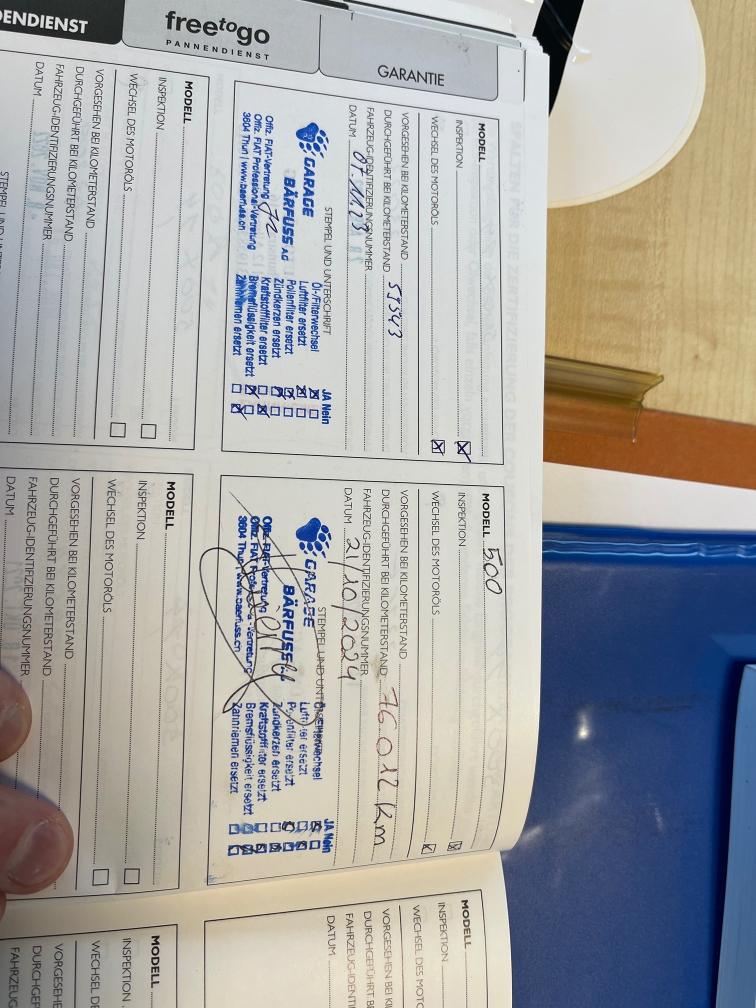 DENDIENST
freetogo
PANNENDIENST
GARANTIE
MODELL
INSPEKTION
WECHSEL DES MOTORÖLS
VORGESEHEN BEI KILOMETERSTAND
DURCHGEFÜHRT BEI KILOMETERSTAND 59543
FAHRZEUG-IDENTIFIZIERUNGSNUMMER
DATUM 07.11.23
STEMPEL UND UNTERSCHRIFT
GARAGE
BÄRFUSS AG
Offiz. FIAT-Vertretung
Offiz. FIAT Professional-Vertretung
3604 Thun | www.baerfuss.ch
JA Nein
Öl-/Filterwechsel
Luftfilter ersetzt
Pollenfilter ersetzt
Zündkerzen ersetzt
Kraftstofffilter ersetzt
Bremsflüssigkeit ersetzt
Zahnriemen ersetzt
MODELL 500
INSPEKTION
WECHSEL DES MOTORÖLS
VORGESEHEN BEI KILOMETERSTAND
DURCHGEFÜHRT BEI KILOMETERSTAND 76.012 Km
FAHRZEUG-IDENTIFIZIERUNGSNUMMER
DATUM 21/10/2024
STEMPEL UND
GARAGE
BÄRFUSS
Offiz. FIAT-Vertretung
Offiz. FIAT Professional-Vertretung
3604 Thun | www.baerfuss.ch
JA Nein
Luftfilter ersetzt
Pollenfilter ersetzt
Zündkerzen ersetzt
Kraftstofffilter ersetzt
Bremsflüssigkeit ersetzt
Zahnriemen ersetzt
MODELL
INSPEKTION
WECHSEL DES MOTORÖLS
VORGESEHEN BEI KILOMETERSTAND
DURCHGEFÜHRT BEI KILOMETERSTAND
FAHRZEUG-IDENTIFIZIERUNGSNUMMER
DATUM
STEMPEL UND
MODELL
INSPEKTION
WECHSEL DES MOTORÖLS
VORGESEHEN BEI KILOMETERSTAND
DURCHGEFÜHRT BEI KILOMETERSTAND
FAHRZEUG-IDENTIFIZIERUNGSNUMMER
DATUM
MODELL
INSPEKTION
WECHSEL DES MOT
VORGESEHEN BEI K
DURCHGEFÜHRT B
FAHRZEUG-IDENTI
DATUM
MODELL
INSPEKTION
WECHSEL DE
VORGESEHE
DURCHGE
FAHRZEUG